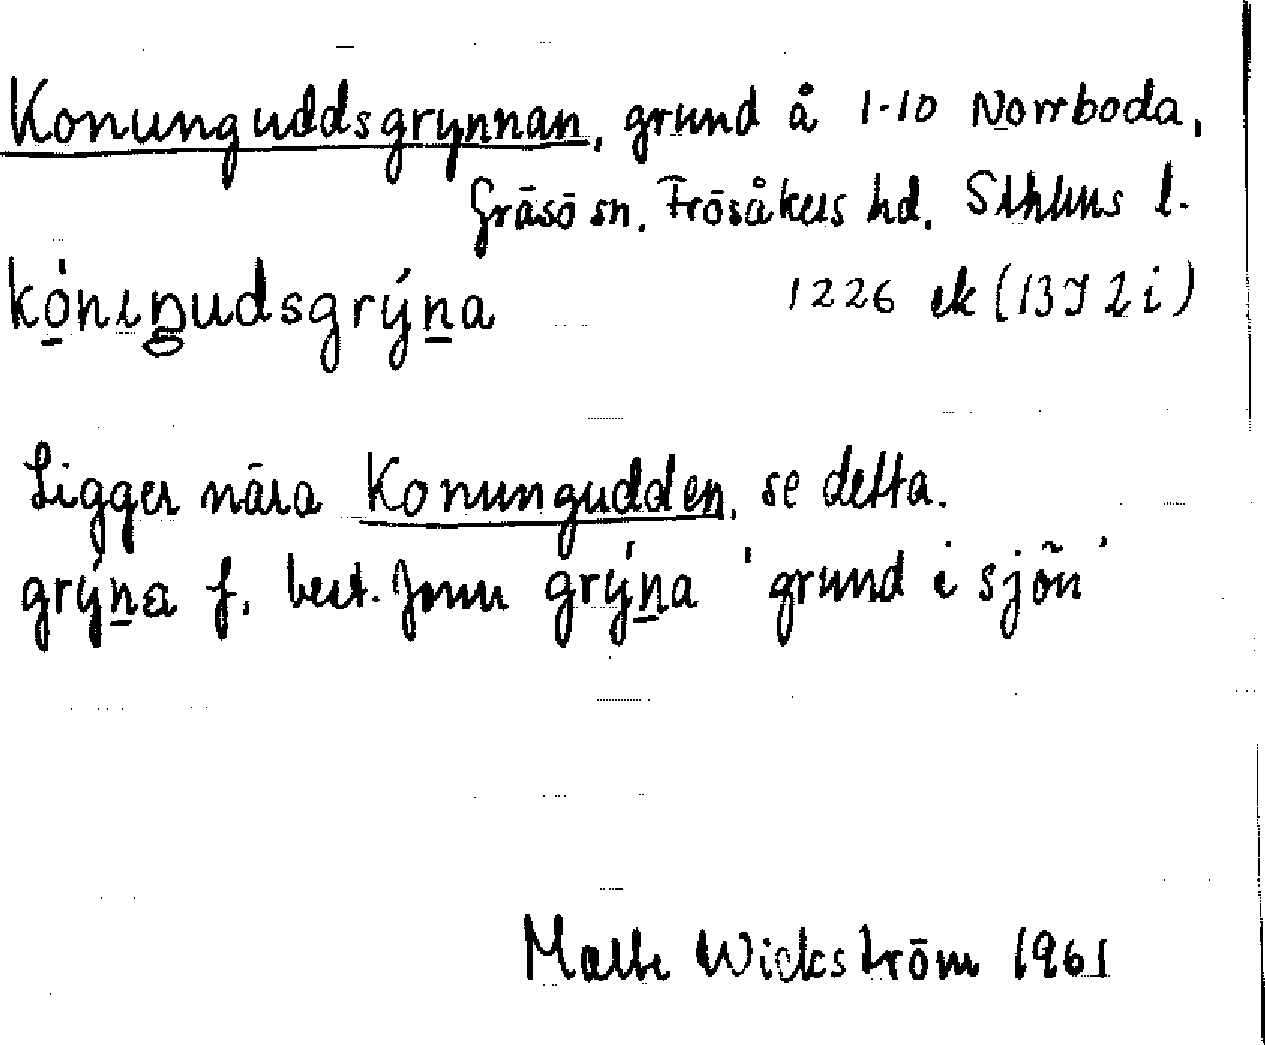 Konunguddsgrynnan, grund å 1-10 Norrboda,
Gräsö sn. Frösåkers hd. Sthlms l.
kǫ́nıŋudsgrýn̲a 1226 ek (13I 2 i)
Ligger nära Konungudden, se detta.
grýn̲a f. best. form grýn̲a 'grund i sjön'
Malte Wickström 1961